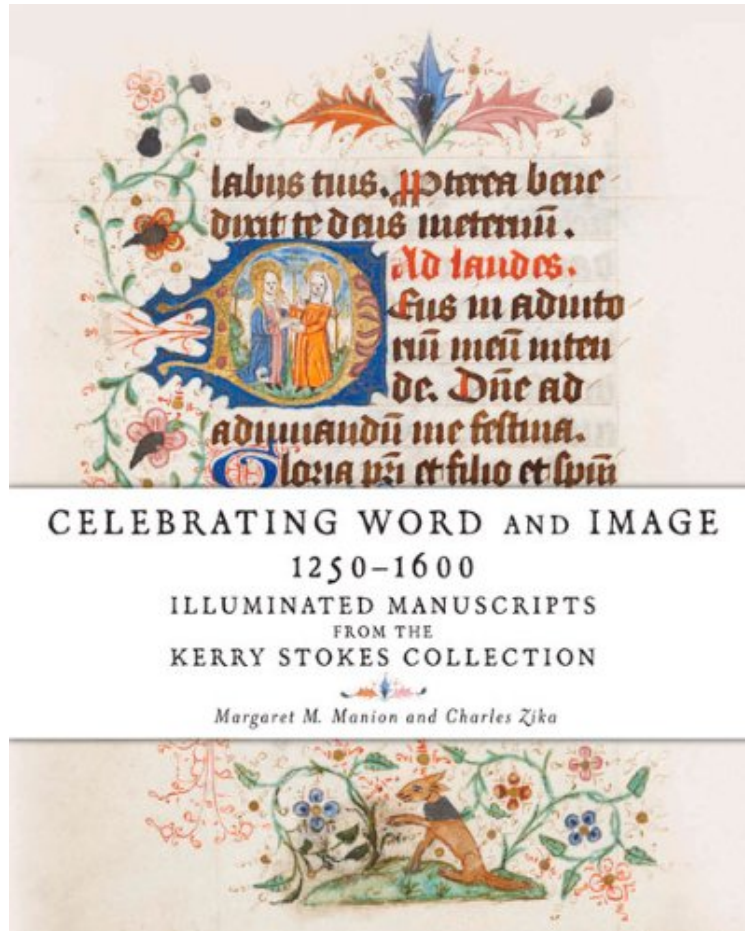 labijs tuis. Pterea bene
dixit te deus ineternū.
Ad laudes.
Eus in adiuto
riū meū inten
de. Dn̄e ad
adiuuandū me festina.
Gloria pr̄i et filio et spiīi
CELEBRATING WORD AND IMAGE
1250–1600
ILLUMINATED MANUSCRIPTS
FROM THE
KERRY STOKES COLLECTION
Margaret M. Manion and Charles Zika